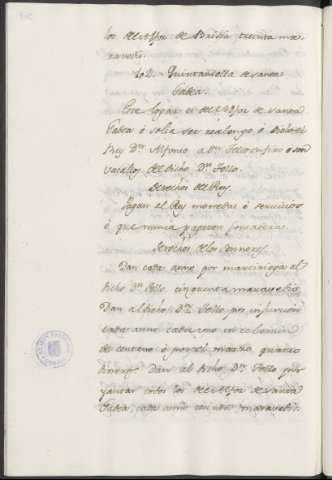 los del Alfoz de Bricia treinta ma-
ravedis.
102. Quintaniella de Santa
Gadea.
Este logar es del Alfoz de Santa
Gadea é solia ser realengo é diolo el
Rey Dn. Alfonso a Dn. é son
vasallos del dicho Dn. Tello.
Derechos del Rey.
Pagan al Rey monedas é servicios
é que nunca pagaron fonsadera.
Derechos de los Sennores.
Dan cada anno por marzaniega al
dicho Dn. Tello cinquenta maravedis.
Dan al dicho Dn. Tello por infurcion
cada anno cada uno un celemin
de centeno é por el marzo quatro
dineros. Dan al dicho Dn. Tello por
yantar todos los del Alfoz de Santa
Gadea cada anno maravedis.